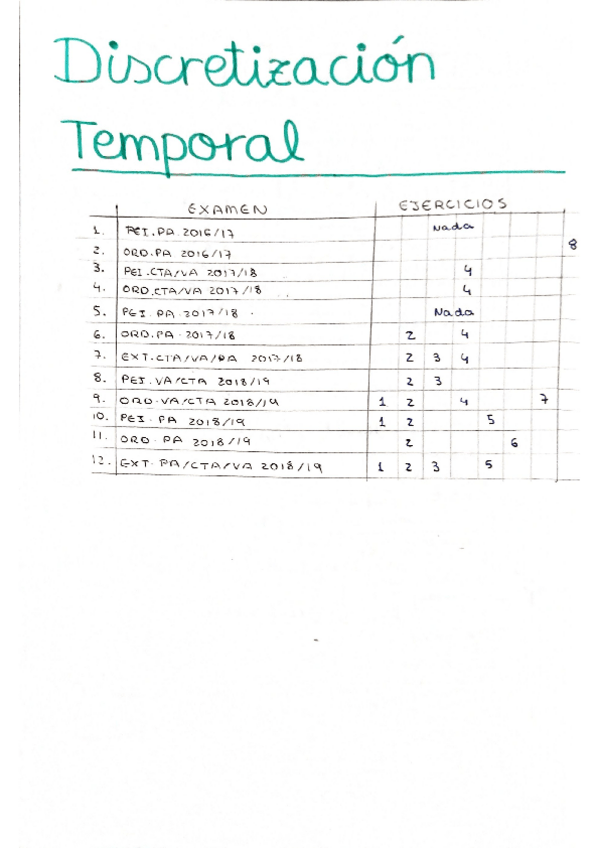 Discretización
Temporal
EXAMEN EJERCICIOS
1. PEI.PA 2016/17 Nada
2. ORD.PA 2016/17 8
3. PEI.CTA/VA 2017/18 4
4. ORD.CTA/VA 2017/18 4
5. PEI.PA.2017/18. Nada
6. ORD.PA.2017/18 2 4
7. EXT.CTA/VA/PA 2017/18 2 3 4
8. PEI.VA/CTA 2018/19 2 3
9. ORD.VA/CTA 2018/19 1 2 4 7
10. PEI.PA 2018/19 1 2 5
11. ORD.PA 2018/19 2 6
12. EXT.PA/CTA/VA 2018/19 1 2 3 5